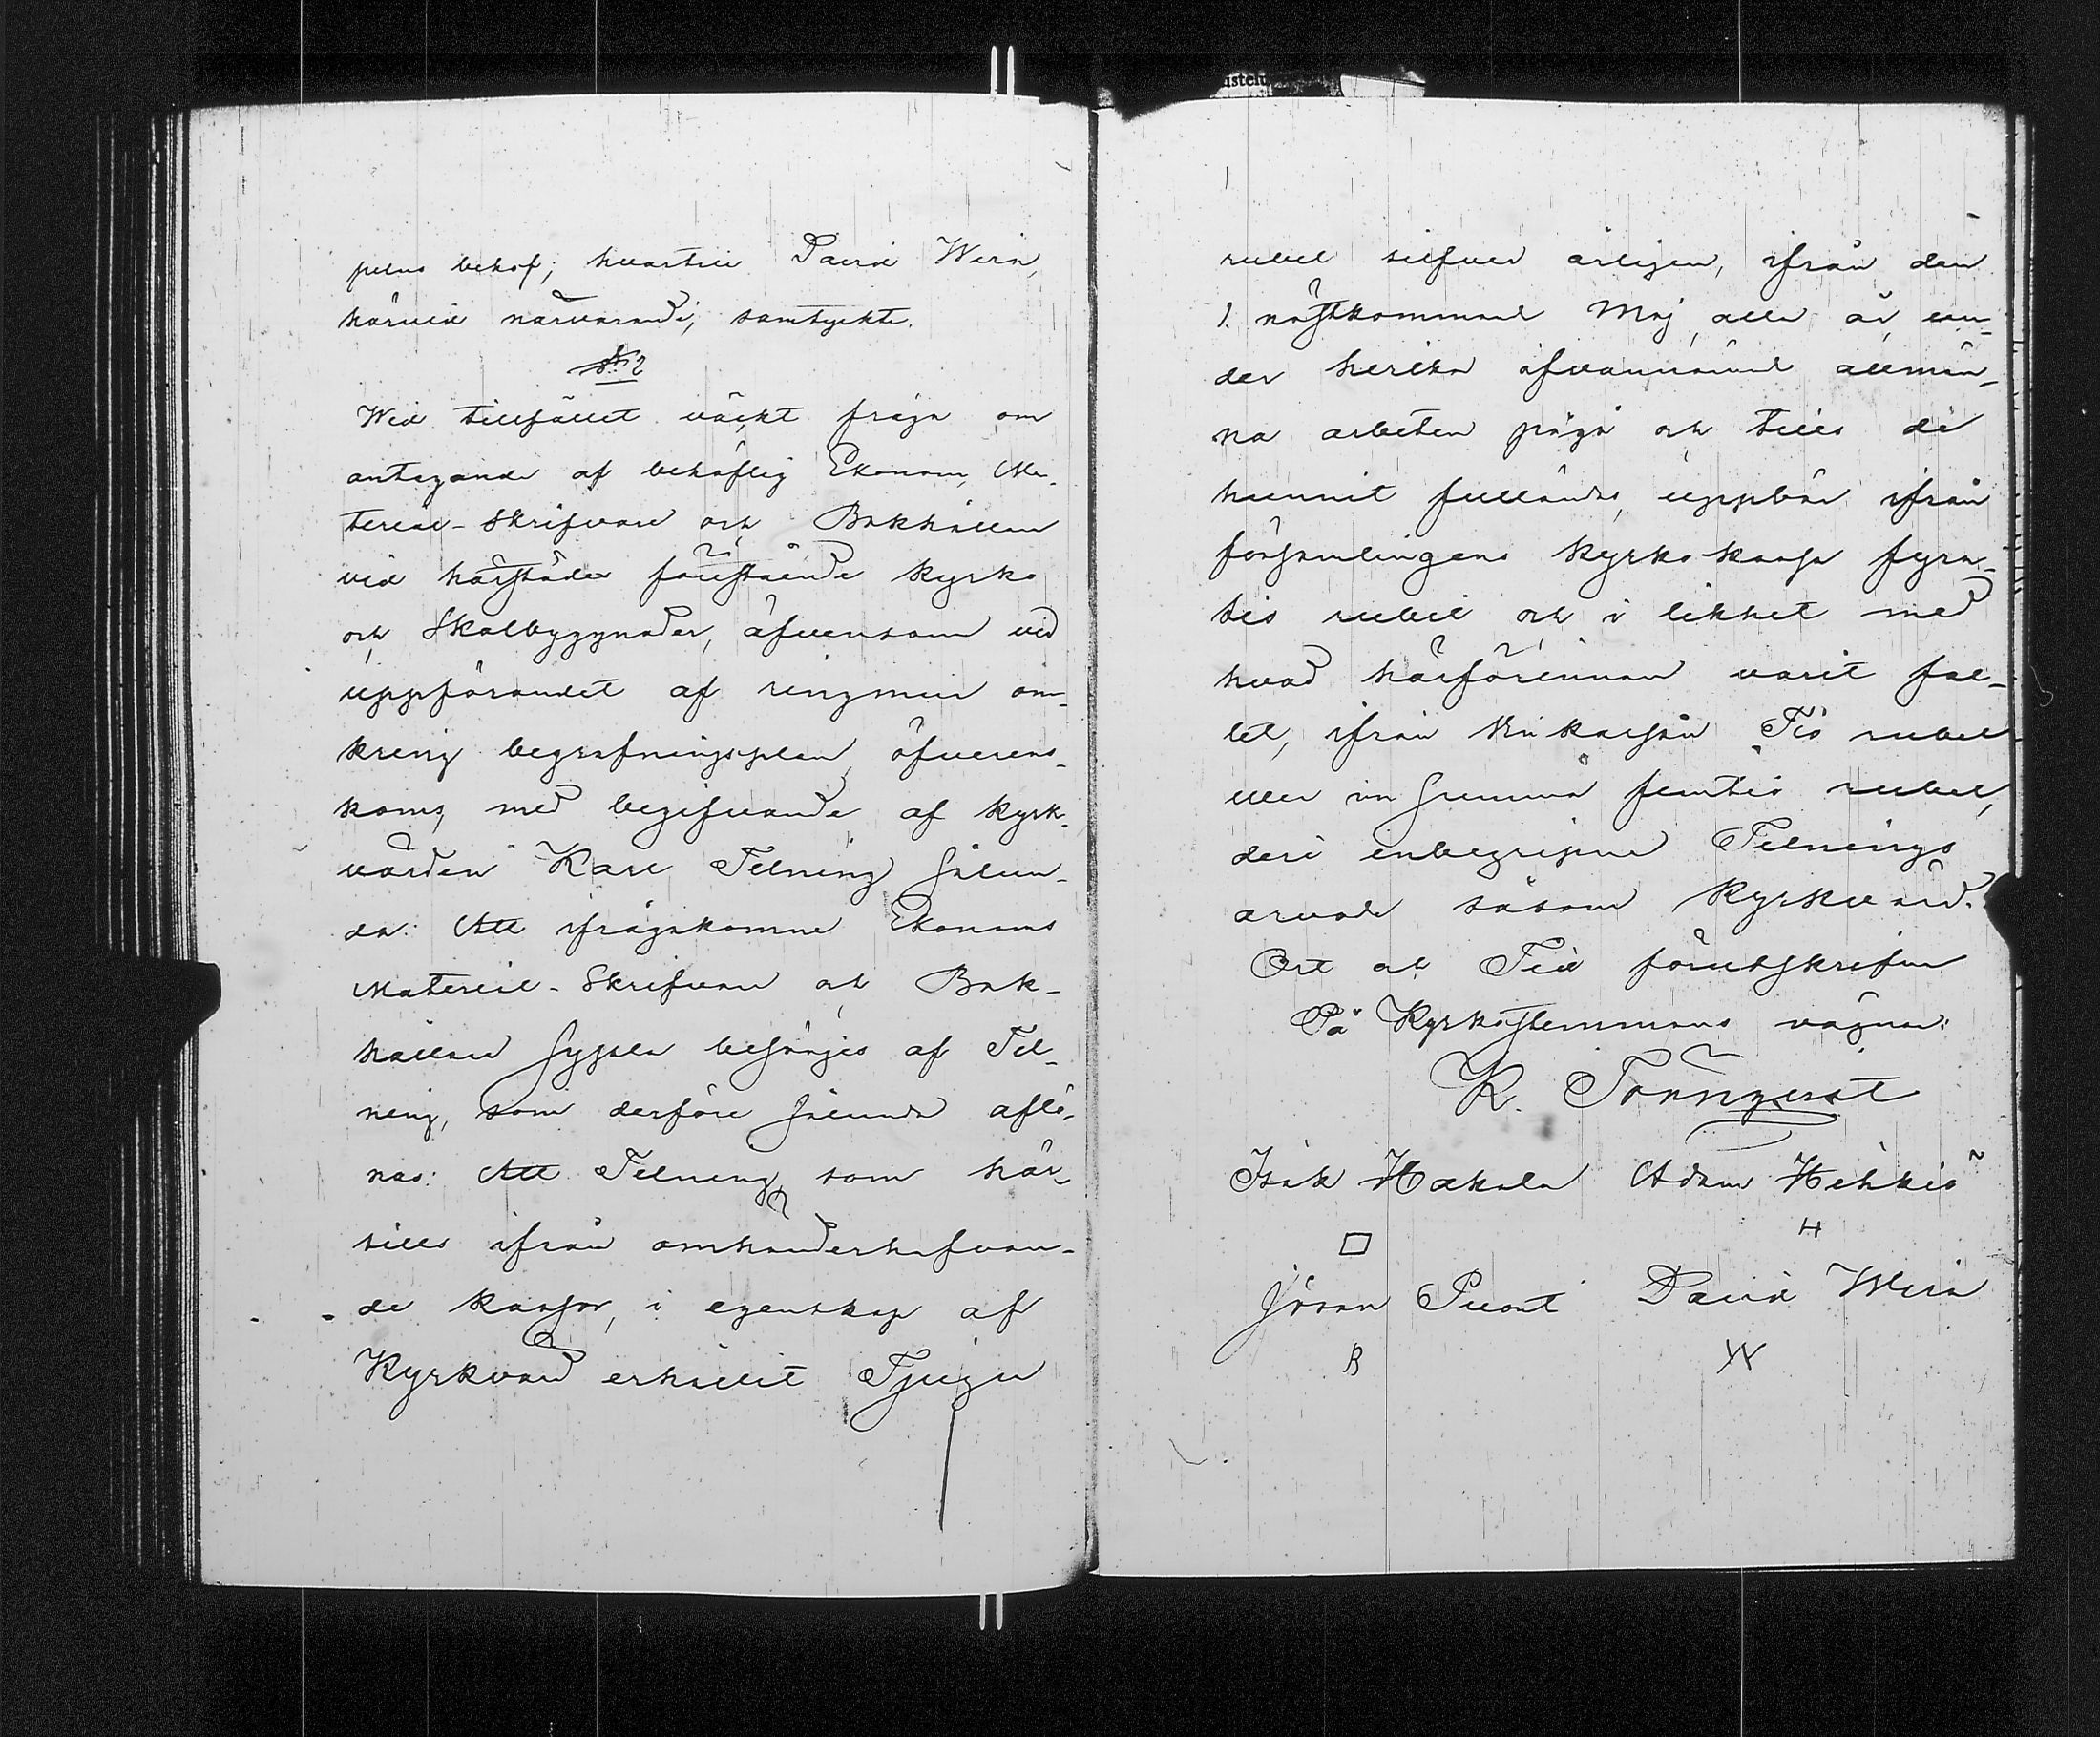 pelns behof; hvartill David Wirn,
härvid närvarande, samtyckte.
§ 2
Wid tillfället väckt fråga om
antagande af behöflig Ekonom, Ma-
terial-Skrifvare och Bokhållare
vid härstädes förestående kyrko
och Skolbyggnader, äfvensom vid
uppförandet af ringmur om-
kring begrafningsplan, öfverens-
koms, med begifvande af kyrk-
värden Karl Telning sålun-
da: Att ifrågakomne Ekonoms
Material-Skrifvare och Bok-
hållare sysslor besörjes af Tel-
ning, som derföre sålunda aflö-
nas: Att Telning, som här-
tills ifrån omhänderhafvan-
de kassor, i egenskap af
Kyrkvärd erhållit Tjugu
rubel silfver årligen, ifrån den
1. nästkommande Maj, alla år, un-
der hvilka ofvannämnde allmän-
na arbeten pågå och tills de
hunnit fulländas, uppbär ifrån
församlingens Kyrko kassa fyra-
tio rubel och i likhet med
hvad härförinnan varit fal-
let, ifrån Tio rubel
eller in summa femtio rubel,
deri inbegripne Telnings
arvode såsom Kyrkvärd.
Ort och Tid förutskrifne
På Kyrkostämmans vägnar:
K. Törnqvist
Isak Hakala Adam Heikkilä
H
Jöran Puont David Wirn
B W